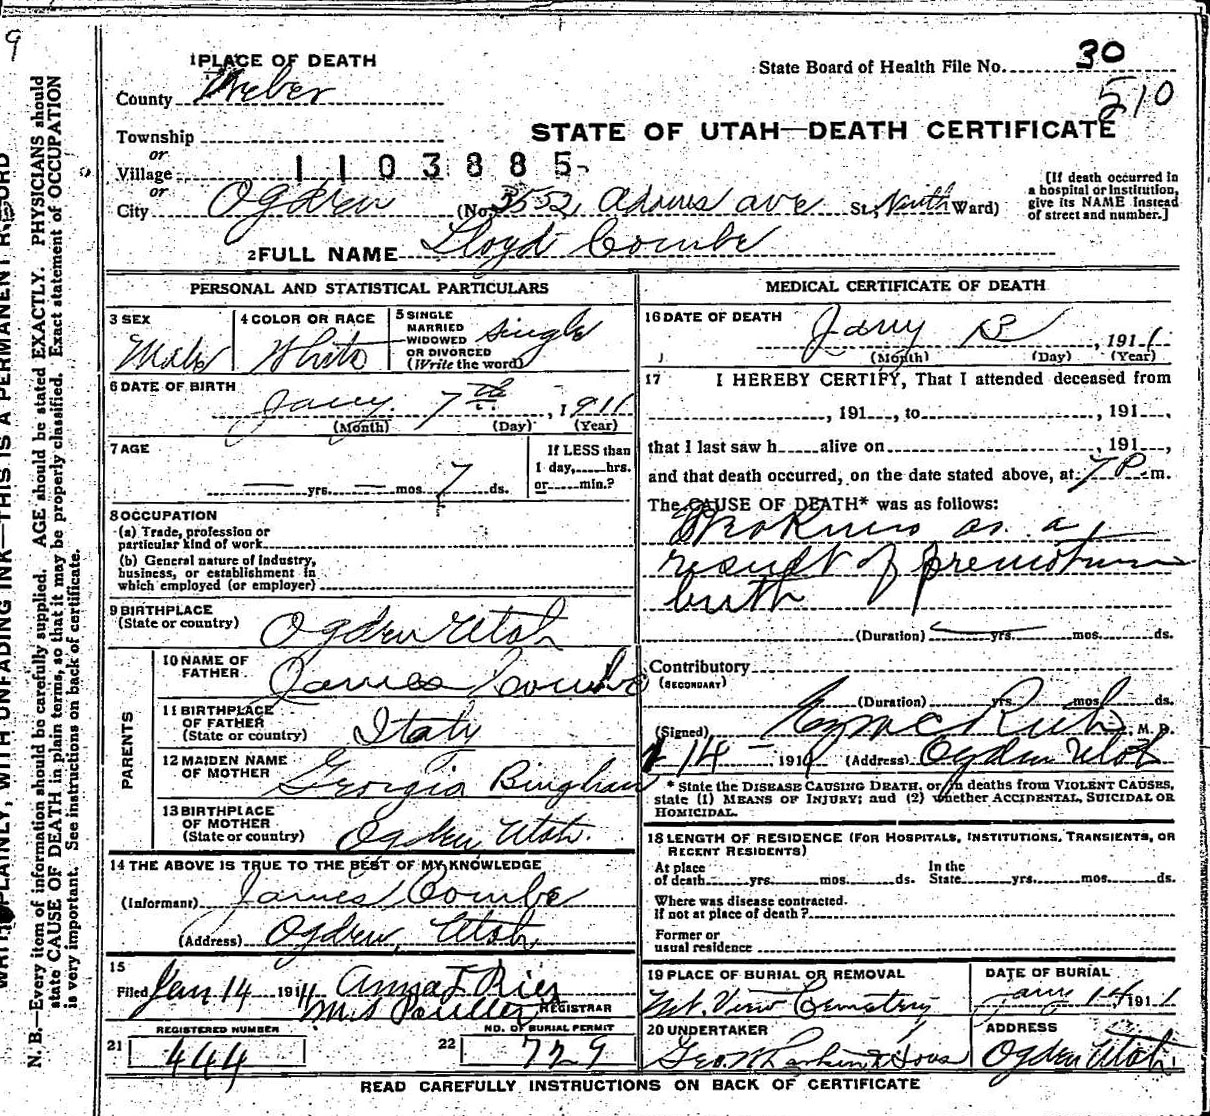 9
1 PLACE OF DEATH
State Board of Health File No. 30
510
County Weber
STATE OF UTAH—DEATH CERTIFICATE
Township
or
Village 1103885
or
City Ogden (No. 3552 Adams ave St., Ninth Ward)
[If death occurred in
a hospital or institution,
give its NAME instead
of street and number.]
2 FULL NAME Lloyd Combe
PERSONAL AND STATISTICAL PARTICULARS
3 SEX
Male
4 COLOR OR RACE
White
5 SINGLE
MARRIED
WIDOWED
OR DIVORCED
(Write the word)
Single
6 DATE OF BIRTH
Jany. 7th, 1911
(Month) (Day) (Year)
7 AGE
— yrs. — mos. 7 ds.
If LESS than
1 day, hrs.
or min.?
8 OCCUPATION
(a) Trade, profession or
particular kind of work
(b) General nature of industry,
business, or establishment in
which employed (or employer)
9 BIRTHPLACE
(State or country)
Ogden Utah
PARENTS
10 NAME OF
FATHER
James Combe
11 BIRTHPLACE
OF FATHER
(State or country)
Italy
12 MAIDEN NAME
OF MOTHER
Georgia Bingham
13 BIRTHPLACE
OF MOTHER
(State or country)
Ogden Utah.
14 THE ABOVE IS TRUE TO THE BEST OF MY KNOWLEDGE
(Informant) James Combe
(Address) Ogden, Utah
15
Filed Jan 14 1911
REGISTRAR
REGISTERED NUMBER
21 444
NO. OF BURIAL PERMIT
22 729
MEDICAL CERTIFICATE OF DEATH
16 DATE OF DEATH
Jany 13, 1911
(Month) (Day) (Year)
17 I HEREBY CERTIFY, That I attended deceased from
, 191 , to , 191 ,
that I last saw h alive on , 191 ,
and that death occurred, on the date stated above, at 7 P. m.
The CAUSE OF DEATH* was as follows:
as a
result of premature
birth
(Duration) yrs. mos. ds.
Contributory
(SECONDARY)
(Duration) yrs. mos. ds.
(Signed) , M. D.
1-14-1911 (Address) Ogden Utah
* State the DISEASE CAUSING DEATH, or in deaths from VIOLENT CAUSES,
state (1) MEANS OF INJURY; and (2) whether ACCIDENTAL, SUICIDAL OR
HOMICIDAL.
18 LENGTH OF RESIDENCE (FOR HOSPITALS, INSTITUTIONS, TRANSIENTS, OR
RECENT RESIDENTS)
At place
of death yrs. mos. ds.
In the
State yrs. mos. ds.
Where was disease contracted.
If not at place of death?
Former or
usual residence
19 PLACE OF BURIAL OR REMOVAL
Mt. View Cemetery
DATE OF BURIAL
Jany 14 1911
20 UNDERTAKER
Geo. W Larkin & Sons
ADDRESS
Ogden Utah
READ CAREFULLY INSTRUCTIONS ON BACK OF CERTIFICATE
PLAINLY, WITH UNFADING INK—THIS IS A PERMANENT RECORD
N. B.—Every item of information should be carefully supplied. AGE should be stated EXACTLY. PHYSICIANS should
state CAUSE OF DEATH in plain terms, so that it may be properly classified. Exact statement of OCCUPATION
is very important. See instructions on back of certificate.